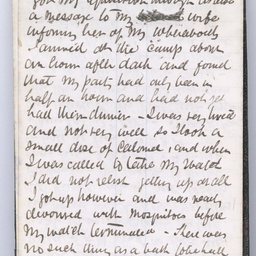 a message to my wife
informing her of my whereabouts
I arrived at the camp about
an hour after dark and found
that my party had only been in
half an hour and had not yet
had their dinner - I was very tired
and not very well so I took a
small dose of Calomel, and when
I was called to take my watch
I did not relish getting up at all
I got up however and was nearly
devoured with mosquitoes before
my watch terminated - There was
no such thing as a bath to be had